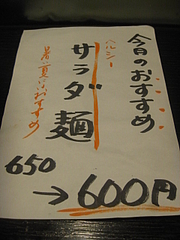 今日のおすすめ
ヘルシー
サラダ麺
暑い夏におすすめ
650
→600円